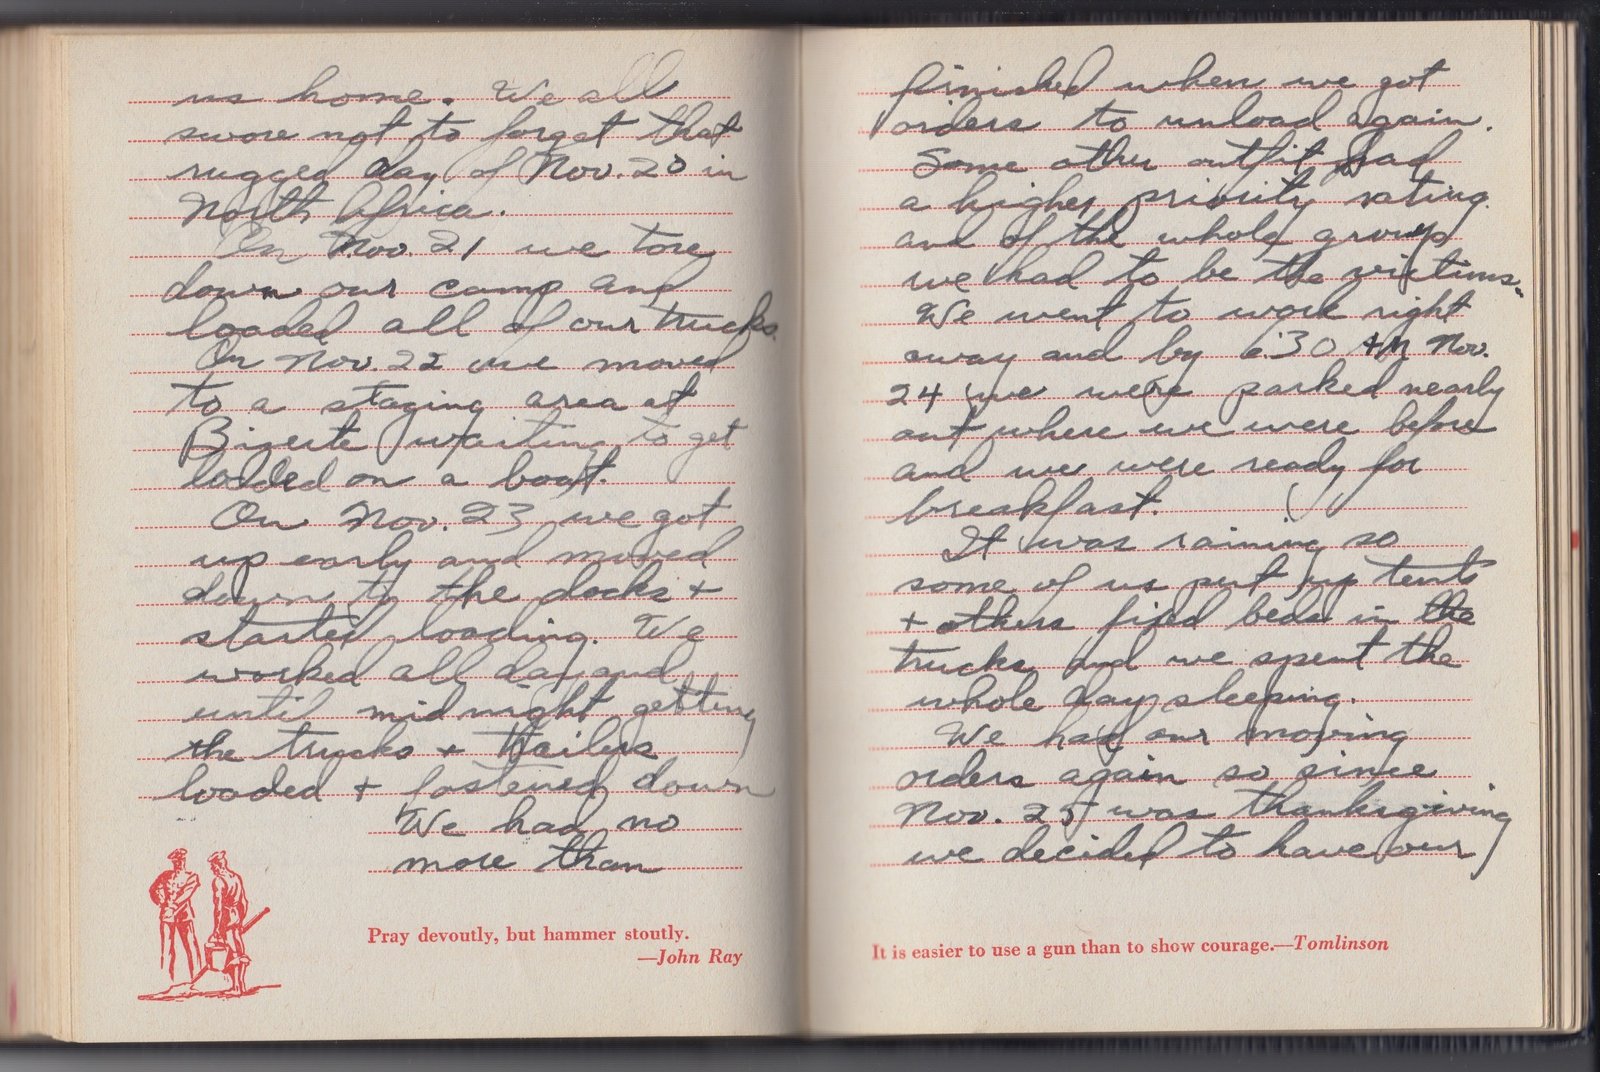 us home. We all
swore not to forget that
rugged day of Nov. 20 in
North Africa.
On Nov. 21 we tore
down our camp and
loaded all of our trucks.
On Nov. 22 we moved
to a staging area at
Bizerte waiting to get
loaded on a boat.
On Nov. 23 we got
up early and moved
down to the docks +
started loading. We
worked all day and
until midnight getting
the trucks + trailers
loaded + fastened down
We had no
more than
Pray devoutly, but hammer stoutly.
—John Ray
finished when we got
orders to unload again.
Some other outfit had
a higher priority rating
and of the whole group
we had to be the victims.
We went to work right
away and by 6:30 AM Nov.
24 we were parked nearly
out where we were before
and we were ready for
breakfast.
It was raining so
some of us put up tents
+ others fixed beds in the
trucks and we spent the
whole day sleeping.
We had our moving
orders again so since
Nov. 25 was thanksgiving
we decided to have our
It is easier to use a gun than to show courage.—Tomlinson